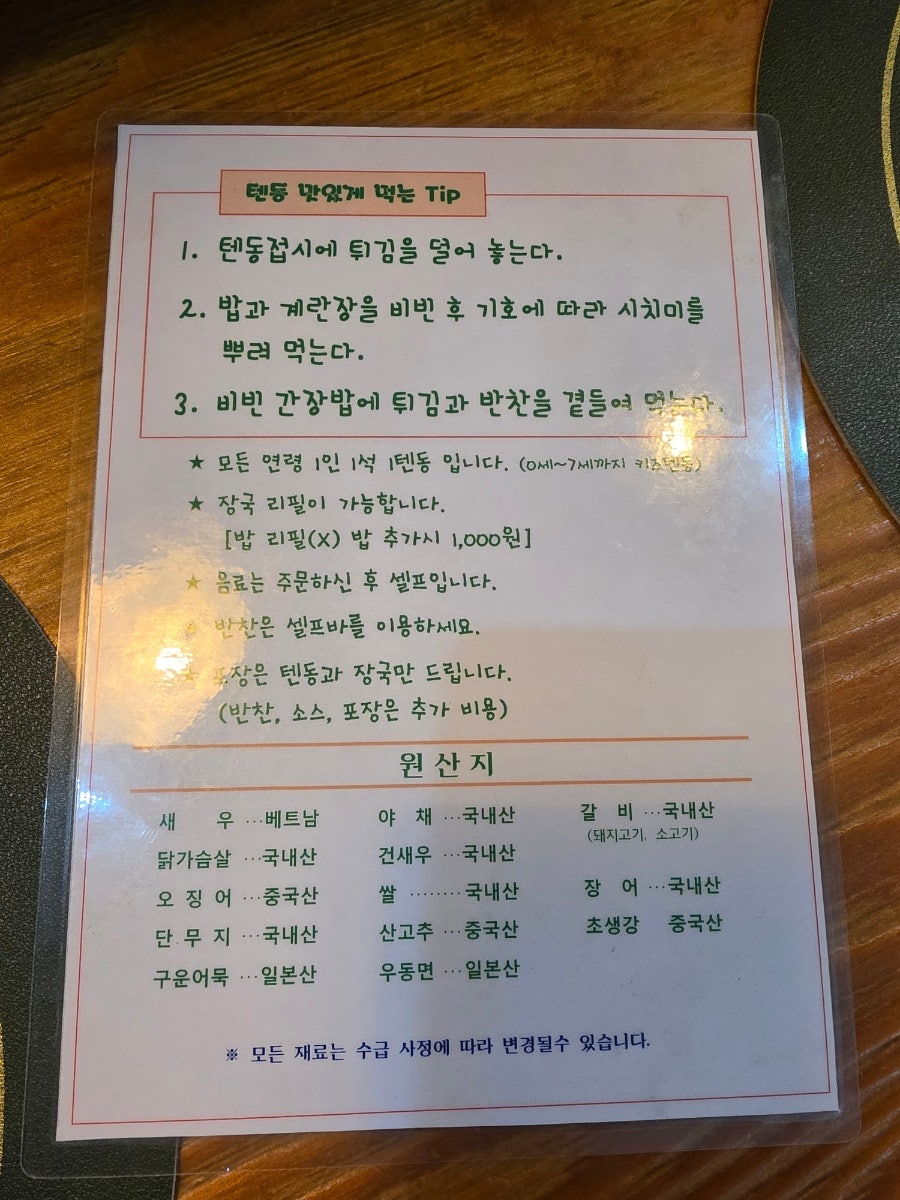 텐동 맛있게 먹는 Tip
1. 텐동접시에 튀김을 덜어 놓는다.
2. 밥과 계란장을 비빈 후 기호에 따라 시치미를
뿌려 먹는다.
3. 비빈 간장밥에 튀김과 반찬을 곁들여 먹는다.
★ 모든 연령 1인 1석 1텐동 입니다. (0세~7세까지 키즈텐동)
★ 장국 리필이 가능합니다.
[밥 리필(X) 밥 추가시 1,000원]
★ 음료는 주문하신 후 셀프입니다.
★ 반찬은 셀프바를 이용하세요.
★ 포장은 텐동과 장국만 드립니다.
(반찬, 소스, 포장은 추가 비용)
원산지
새 우 ···베트남 야 채 ···국내산 갈 비 ···국내산
(돼지고기, 소고기)
닭가슴살 ···국내산 건새우 ···국내산
오 징 어 ···중국산 쌀 ········국내산 장 어 ···국내산
단 무 지 ···국내산 산고추 ···중국산 초생강 중국산
구운어묵 ···일본산 우동면 ···일본산
※ 모든 재료는 수급 사정에 따라 변경될수 있습니다.